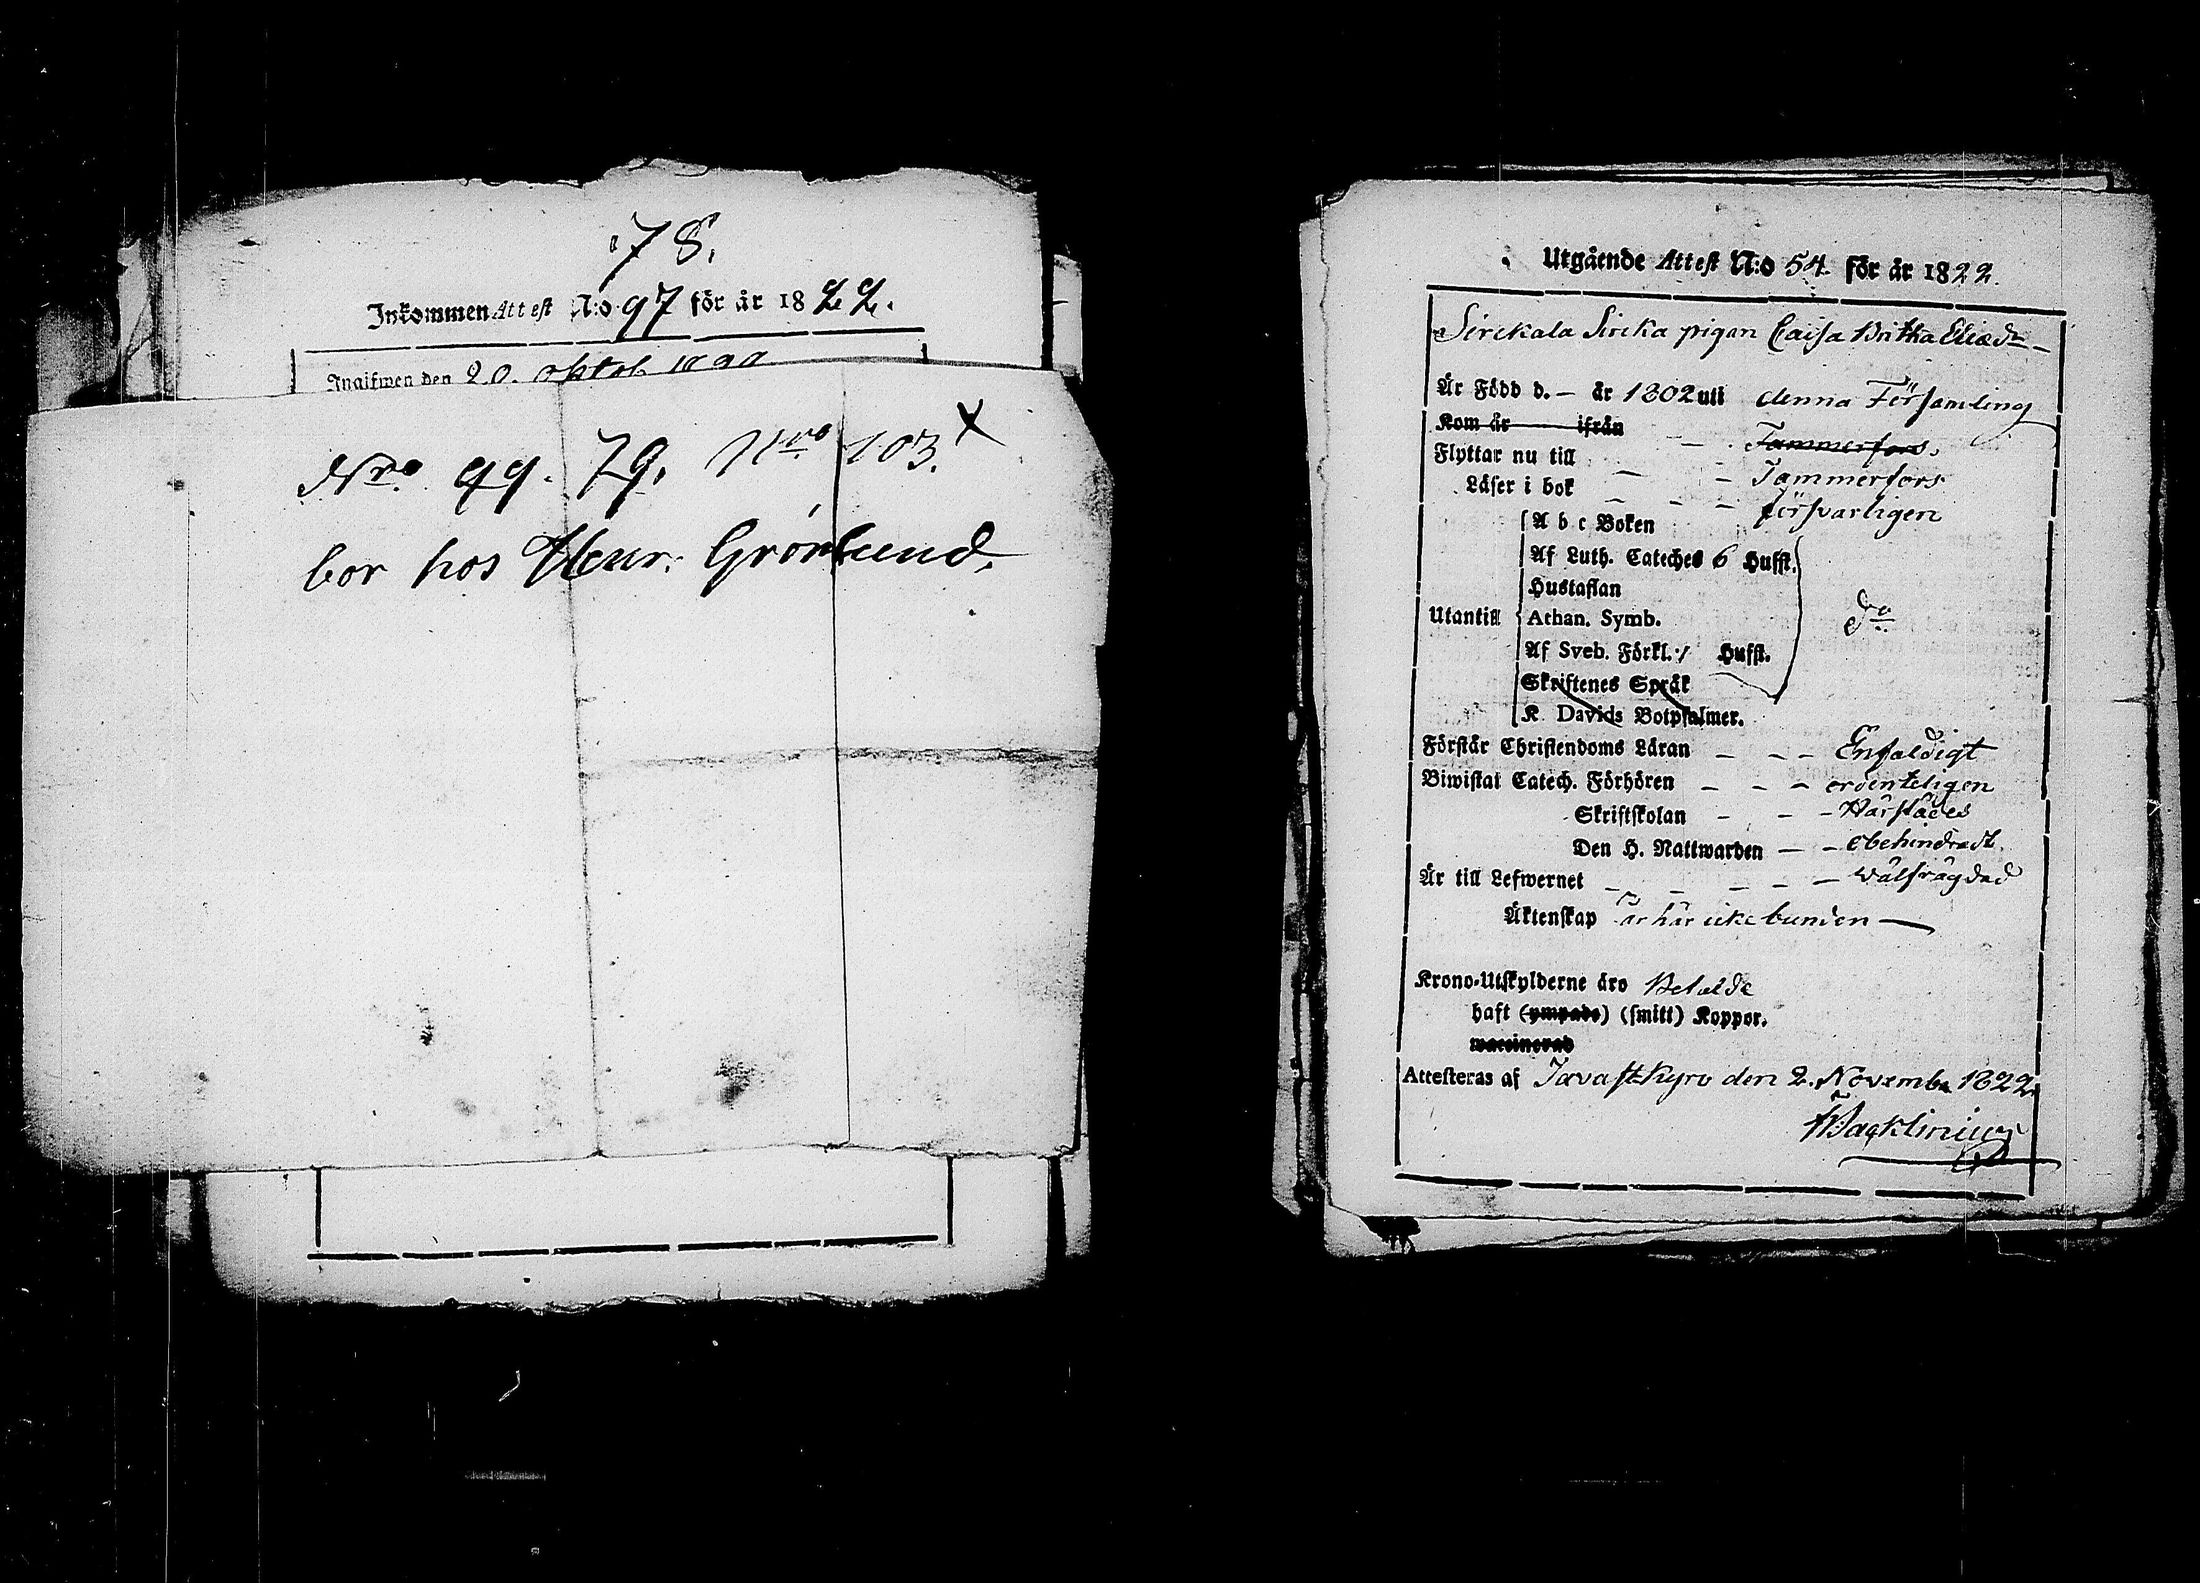 78.
Inkommen Attest N:o 97 för år 1822.
Ingifwen den 20. oktob. 1822
Nro. 99. 79. Nro. 103. X
bor hos Grönlund.
Utgående Attest N:o 54. för år 1822.
Sirckala Sircka pigan Caisa Britha Eliædr
Är Född d. — år 1802 uti denna Församling
Kom år ifrån
Tammerfors.
Flyttar nu till — — Tammerfors
Läser i bok — — — försvarligen
A b c Boken
Af Luth. Cateches 6 Hufst.
Hustaflan
Utantill Athan. Symb. do
Af Sveb. Förkl. / Hufst.
Skriftenes Språk
K. Davids Botpsalmer.
Förstår Christendoms Läran — — — Enfaldigt
Biwistat Catech. Förhören — — — ordenteligen
Skriftskolan — — — Härstädes
Den H. Nattwarden — — obehindradt.
Är till Lefwernet — — — — — wälfrägdad
Äktenskap är här icke bunden —
Krono-Utskylderne äro Betalde
haft (ympade) (smitt) Koppor.
waccinerad
Attesteras af Tavastkyro den 2. Novemb. 1822